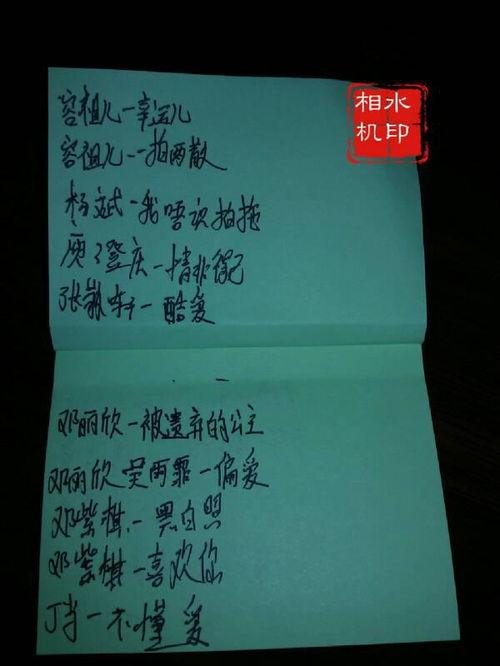 水印
相机
容祖儿-幸运儿
容祖儿-拍两散
杨斌-我唔识拍拖
庾澄庆-情非得已
张敬轩-酷爱
邓丽欣-被遗弃的公主
邓丽欣 吴雨霏-偏爱
邓紫棋-黑白照
邓紫棋-喜欢你
丁当-不懂爱